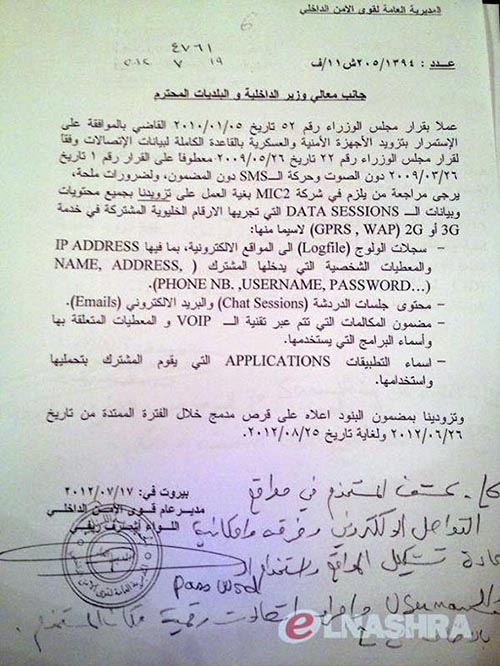 المديرية العامة لقوى الامن الداخلي
6
٤٧٦١
١٩ ٧
عـــدد : ٢٠٥/١٣٩٤ش١١/ف
جانب معالي وزير الداخلية و البلديات المحترم
عملا بقرار مجلس الوزراء رقم ٥٢ تاريخ ٢٠١٠/٠١/٠٥ القاضي بالموافقة على
الإستمرار بتزويد الأجهزة الأمنية والعسكرية بالقاعدة الكاملة لبيانات الإتصالات وفقاً
لقرار مجلس الوزراء رقم ٢٢ تاريخ ٢٠٠٩/٠٥/٢٦ معطوفاً على القرار رقم ١ تاريخ
٢٠٠٩/٠٣/٢٦ دون الصوت وحركة الـــSMS دون المضمون، ولضرورات ملحة،
يرجى مراجعة من يلزم في شركة MIC2 بغية العمل على تزويدنا بجميع محتويات
وبيانات الـــ DATA SESSIONS التي تجريها الارقام الخليوية المشتركة في خدمة
3G أو 2G (GPRS , WAP) لاسيما منها:
– سجلات الولوج (Logfile) الى المواقع الالكترونية، بما فيها IP ADDRESS
والمعطيات الشخصية التي يدخلها المشترك ( NAME, ADDRESS,
PHONE NB. ,USERNAME, PASSWORD…).
– محتوى جلسات الدردشة (Chat Sessions) والبريد الالكتروني (Emails).
– مضمون المكالمات التي تتم عبر تقنية الـــ VOIP و المعطيات المتعلقة بها
وأسماء البرامج التي يستخدمها.
– اسماء التطبيقات APPLICATIONS التي يقوم المشترك بتحمليها
واستخدامها.
وتزودينا بمضمون البنود اعلاه على قرص مدمج خلال الفترة الممتدة من تاريخ
٢٠١٢/٠٦/٢٦ ولغاية تاريخ ٢٠١٢/٠٨/٢٥.
بيروت في: ٢٠١٢/٠٧/١٧
مديـر عام قـوى الأمـن الداخلي
اللـــواء أشـرف ريفـي
المستخدم في مواقع
التواصل الالكتروني
المواقع واستخدام الـ
password
Username
اتصالات رقمية
المستخدم.
ELNASHRA